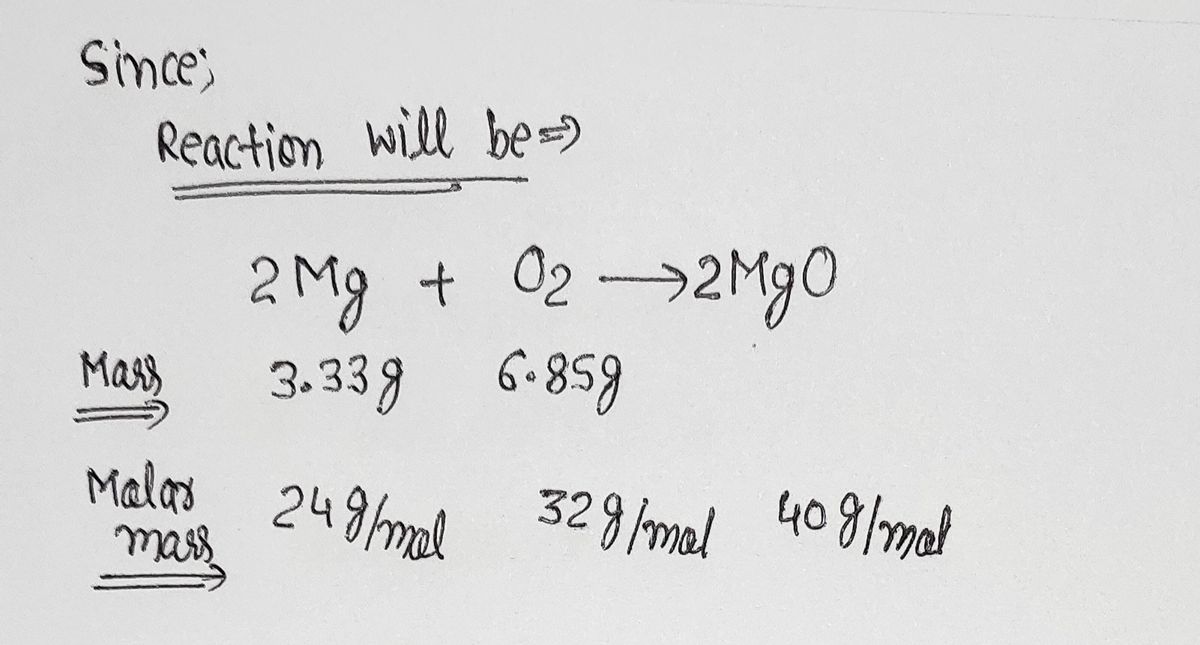 Since;
Reaction will be ⇒
2Mg + O2 → 2MgO
Mass 3.33g 6.85g
Molar 24 g/mol 32 g/mol 40 g/mol
mass